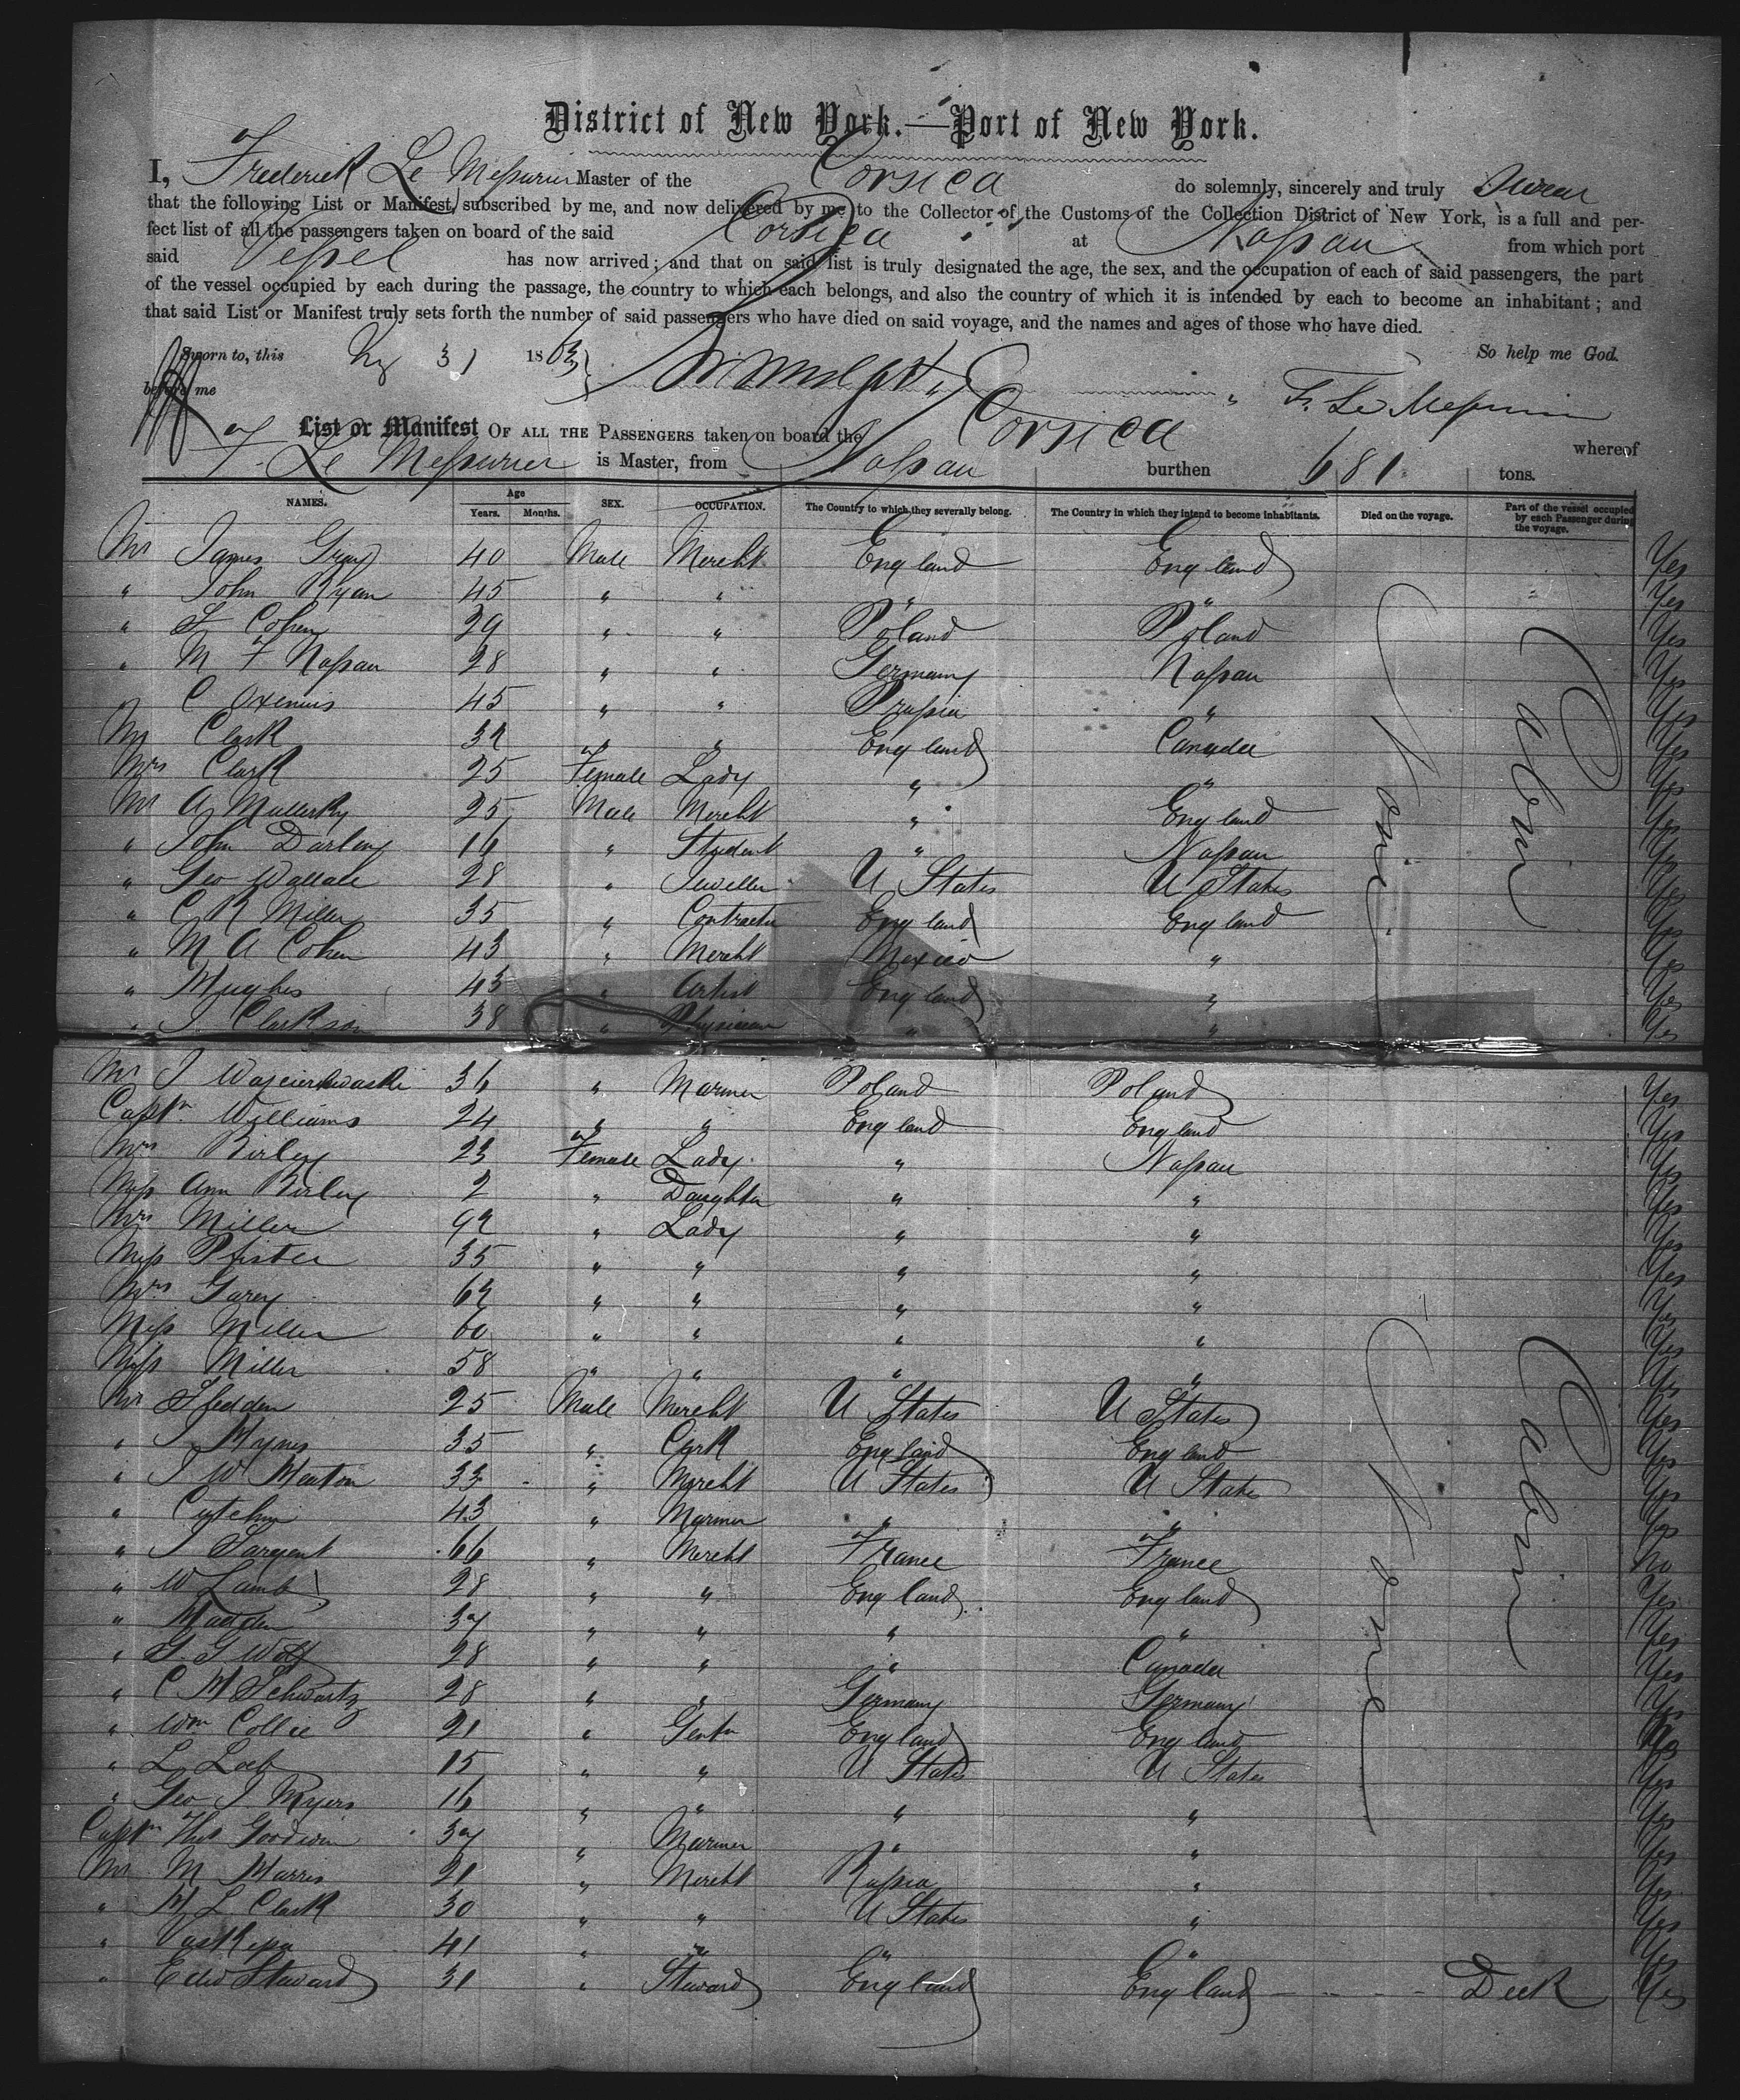 District of New York.—Port of New York.
I, Frederick Le Messurier Master of the Corsica do solemnly, sincerely and truly Swear
that the following List or Manifest, subscribed by me, and now delivered by me to the Collector of the Customs of the Collection District of New York, is a full and per-
fect list of all the passengers taken on board of the said Corsica at Nassau from which port
said Vessel has now arrived; and that on said list is truly designated the age, the sex, and the occupation of each of said passengers, the part
of the vessel occupied by each during the passage, the country to which each belongs, and also the country of which it is intended by each to become an inhabitant; and
that said List or Manifest truly sets forth the number of said passengers who have died on said voyage, and the names and ages of those who have died.
Sworn to, this 31 1863 So help me God.
before me F. Le Messurier
List or Manifest OF ALL THE PASSENGERS taken on board the Corsica whereof
F. Le Messurier is Master, from Nassau burthen 681 tons.
NAMES. Age Years. Months. SEX. OCCUPATION. The Country to which they severally belong. The Country in which they intend to become inhabitants. Died on the voyage. Part of the vessel occupied by each Passenger during the voyage.
Mr James Gray 40 Male Mercht England England Yes
" John Ryan 45 " " " " Yes
" Cohen 29 " " Poland Poland Yes
" M F Nassau 28 " " Germany Nassau Yes
" C Oxenius 45 " " Prussia " Yes
Mr Clark 32 " " England Canada Yes
Mrs Clark 25 Female Lady " " Yes
Mr A 25 Male Mercht " England Yes
" John Darling 16 " Student " Nassau Yes
" Geo Wallace 28 " Jeweller U States U States Yes
" C R Miller 35 " Contractor England England Yes
" M A Cohen 43 " Mercht Mexico " Yes
" Hughes 45 " Artist England " Yes
" J Clarkson 38 " Physician " " Yes
None Cabin
Mr J 36 " Mariner Poland Poland Yes
Captn Williams 24 " " England England Yes
Mrs Birley 23 Female Lady " Nassau Yes
Miss Ann Birley 2 " Daughter " " Yes
Mrs Miller 92 " Lady " " Yes
Miss Pfister 35 " " " " Yes
Mrs 62 " " " " Yes
Miss Miller 60 " " " " Yes
Miss Miller 58 " " " " Yes
Mr 25 Male Mercht U States U States Yes
" J Hynes 35 " Clerk England England Yes
" J W Heaton 33 " Mercht U States U States Yes
" 43 " Mariner " " Yes
" J Sargent 66 " Mercht France France No
" W Lamb 28 " " England England Yes
" Madden 37 " " " " Yes
" G. G Wolf 28 " " " Canada Yes
" C H Schwartz 28 " " Germany Germany Yes
" Wm Collie 21 " Gentn England England
" L Loeb 15 " " U States U States Yes
" Geo J Myers 16 " " " " Yes
Captn Thos Goodwin 37 " Mariner " " Yes
Mr M Harris 21 " Mercht Russia " Yes
" H L Clark 30 " " U States " Yes
" 41 " " " " Yes
" Edw Steward 31 " Steward England England Deck Yes
None Cabin